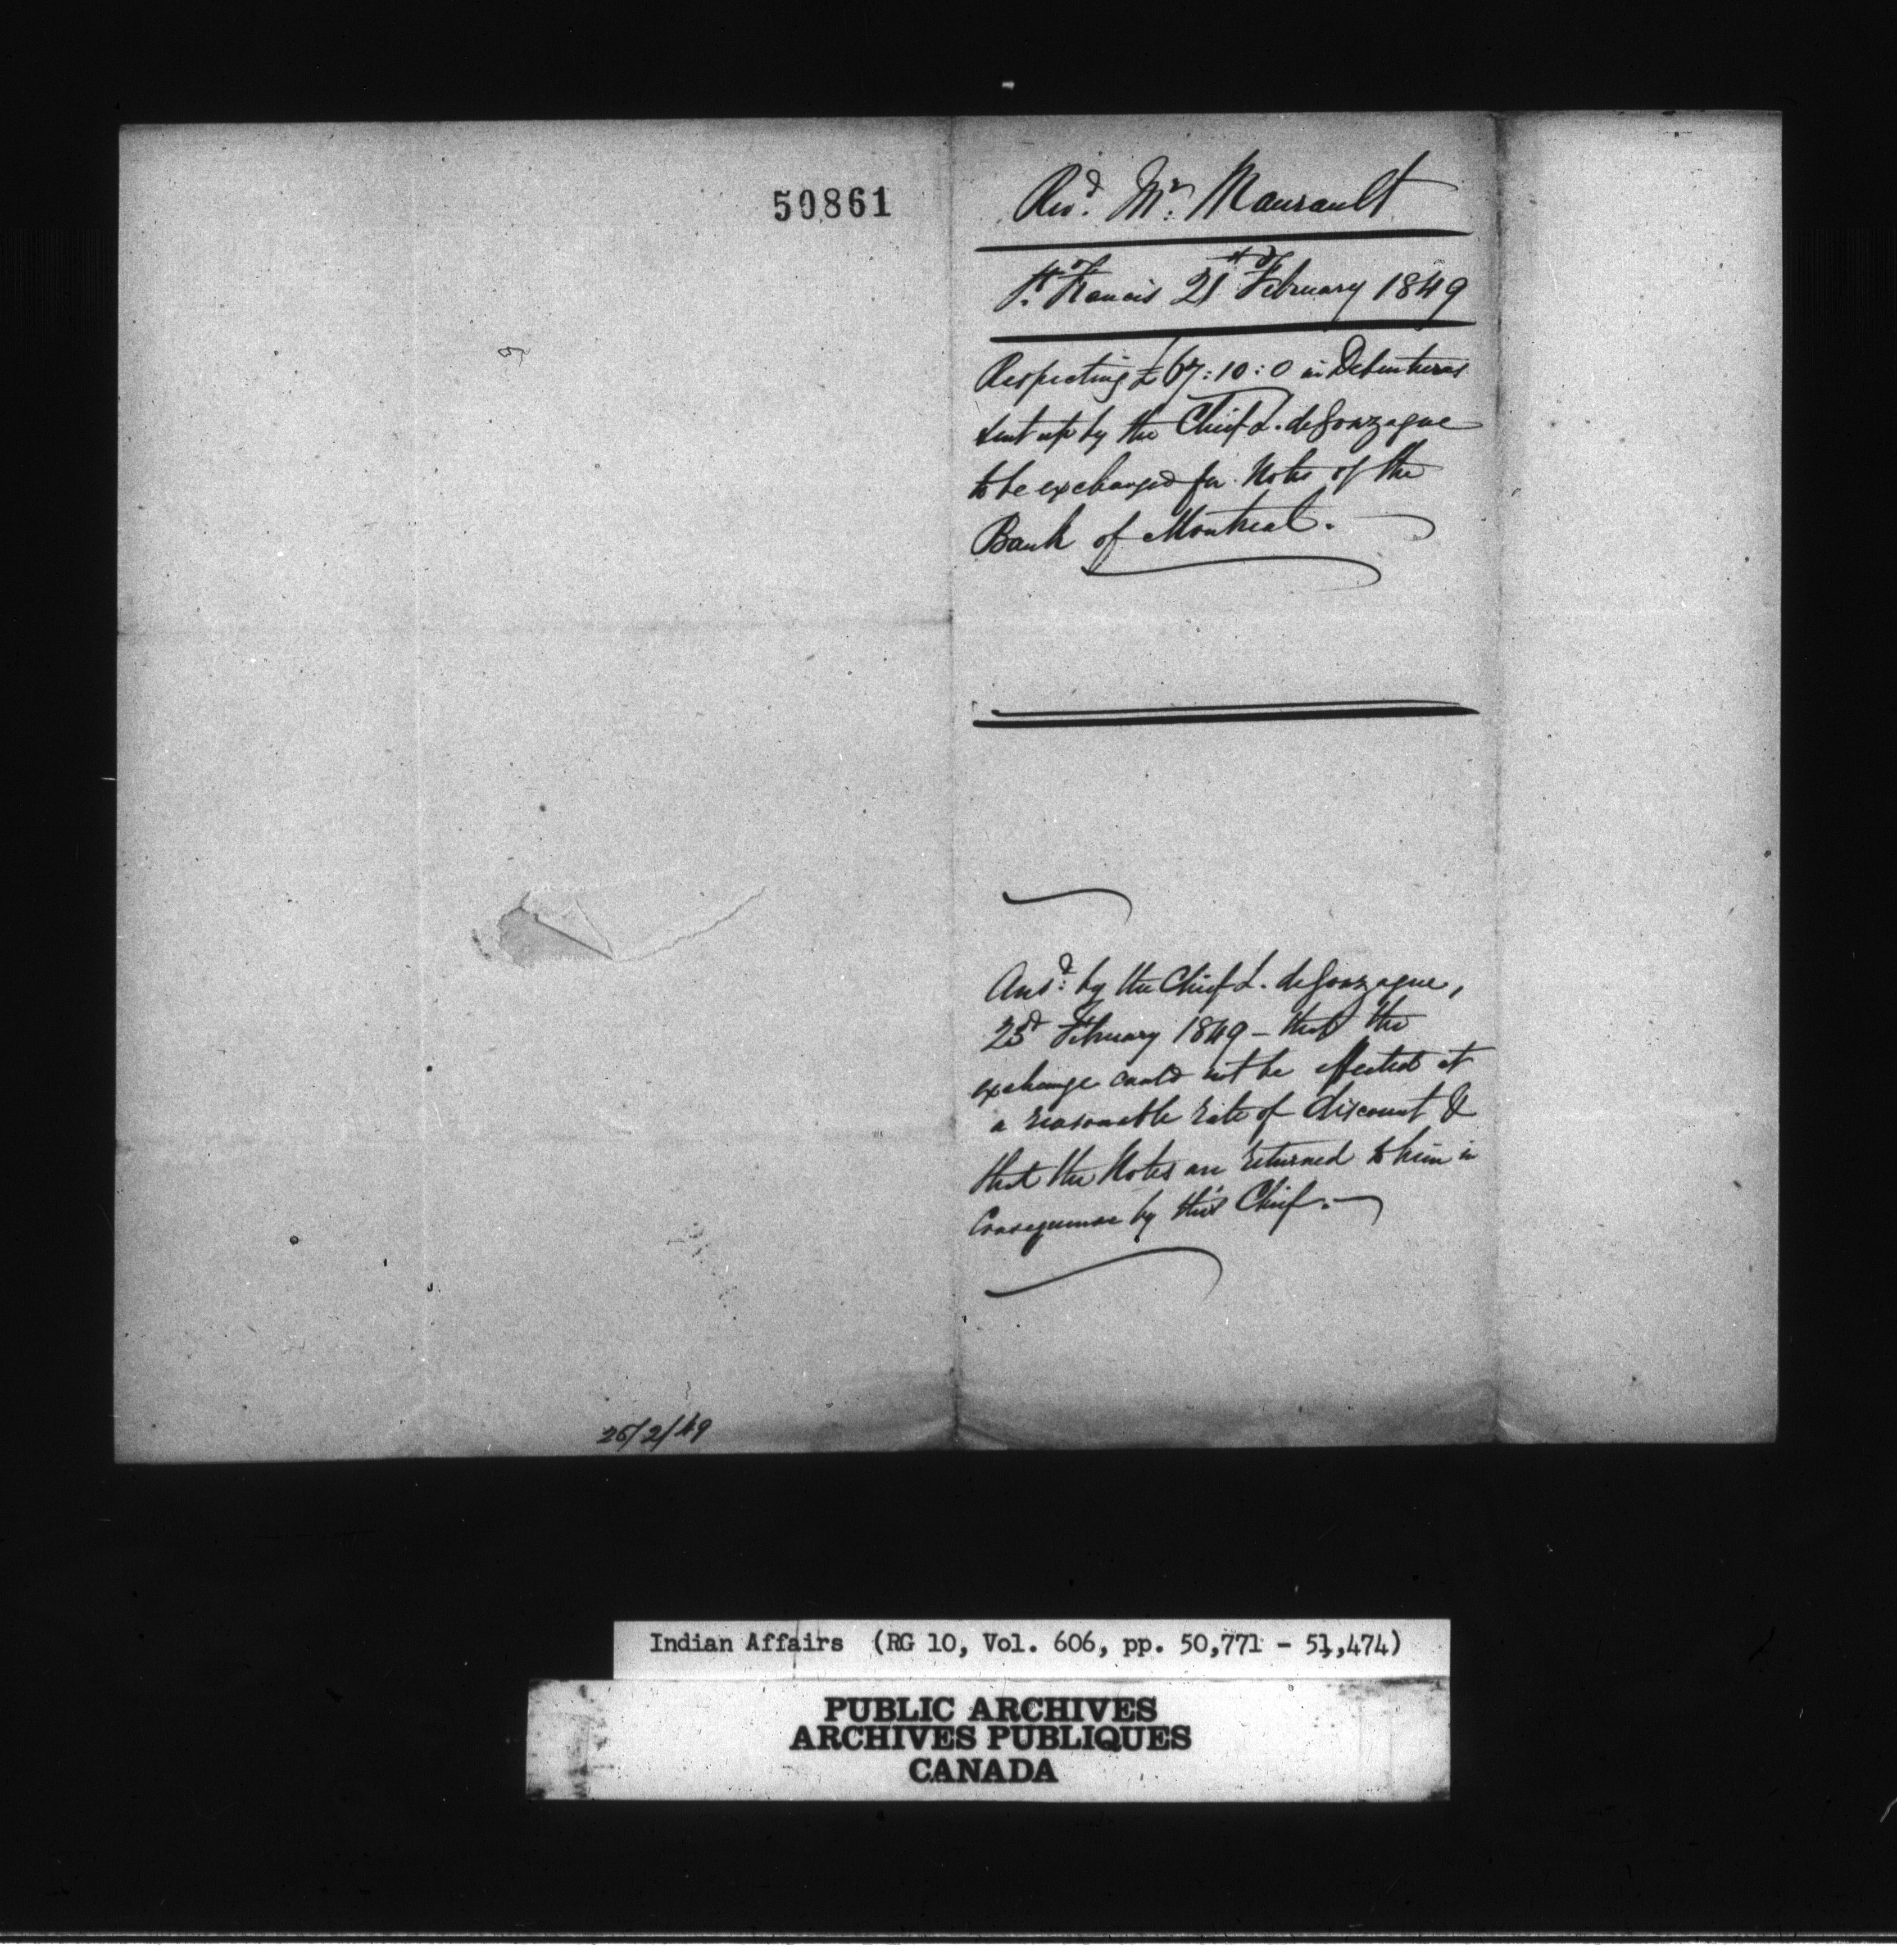 50861
Revd. Mr. Maurault
St. Francis 21st February 1849
Respecting £67:10:0 in Debentures
sent up by the Chief L. de Gonzague
to be exchanged for Notes of the
Bank of Montreal.
Ansd. by the Chief L. de Gonzague,
23d February 1849 - that the
exchange could not be effected at
a reasonable rate of discount &
that the Notes are returned to him in
Consequence by this Chief.
26/2/49
Indian Affairs (RG 10, Vol. 606, pp. 50,771 - 51,474)
PUBLIC ARCHIVES
ARCHIVES PUBLIQUES
CANADA